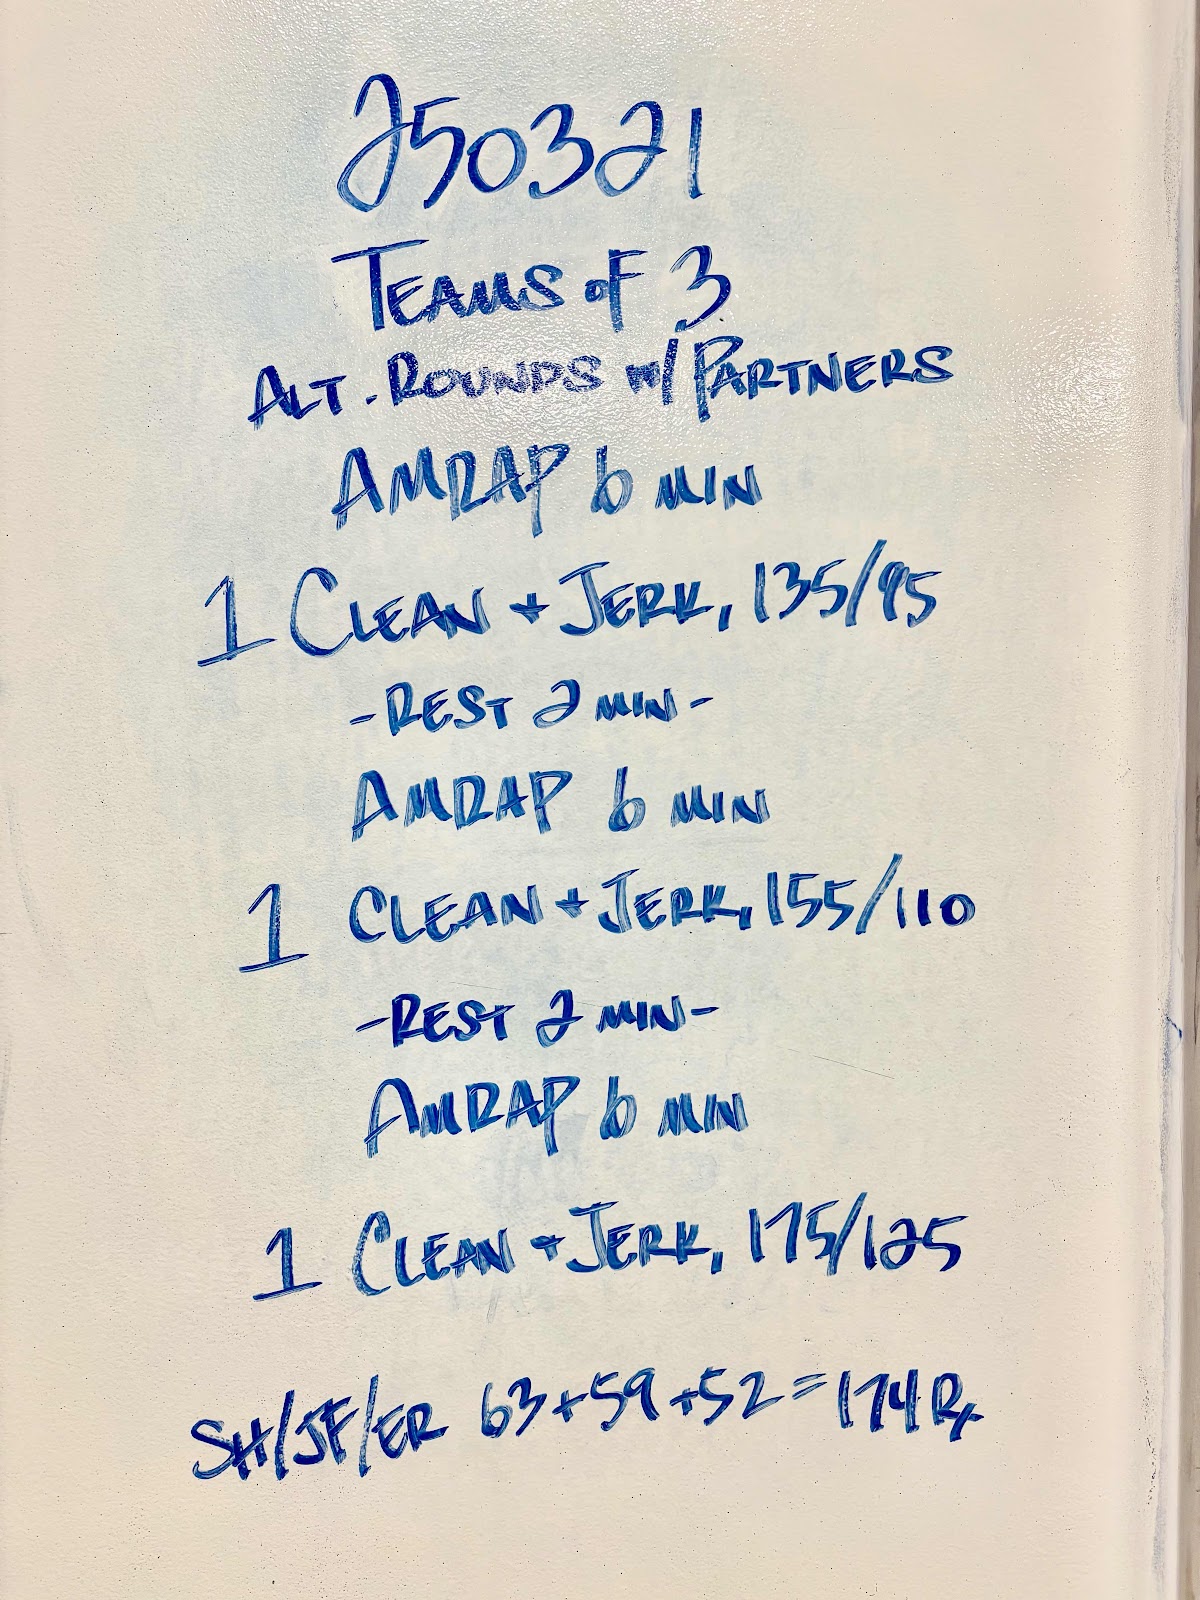 250321
TEAMS OF 3
ALT. ROUNDS W/ PARTNERS
AMRAP 6 MIN
1 CLEAN + JERK, 135/95
-REST 2 MIN-
AMRAP 6 MIN
1 CLEAN + JERK, 155/110
-REST 2 MIN-
AMRAP 6 MIN
1 CLEAN + JERK, 175/125
SH/JF/ER 63+59+52=174 Rx